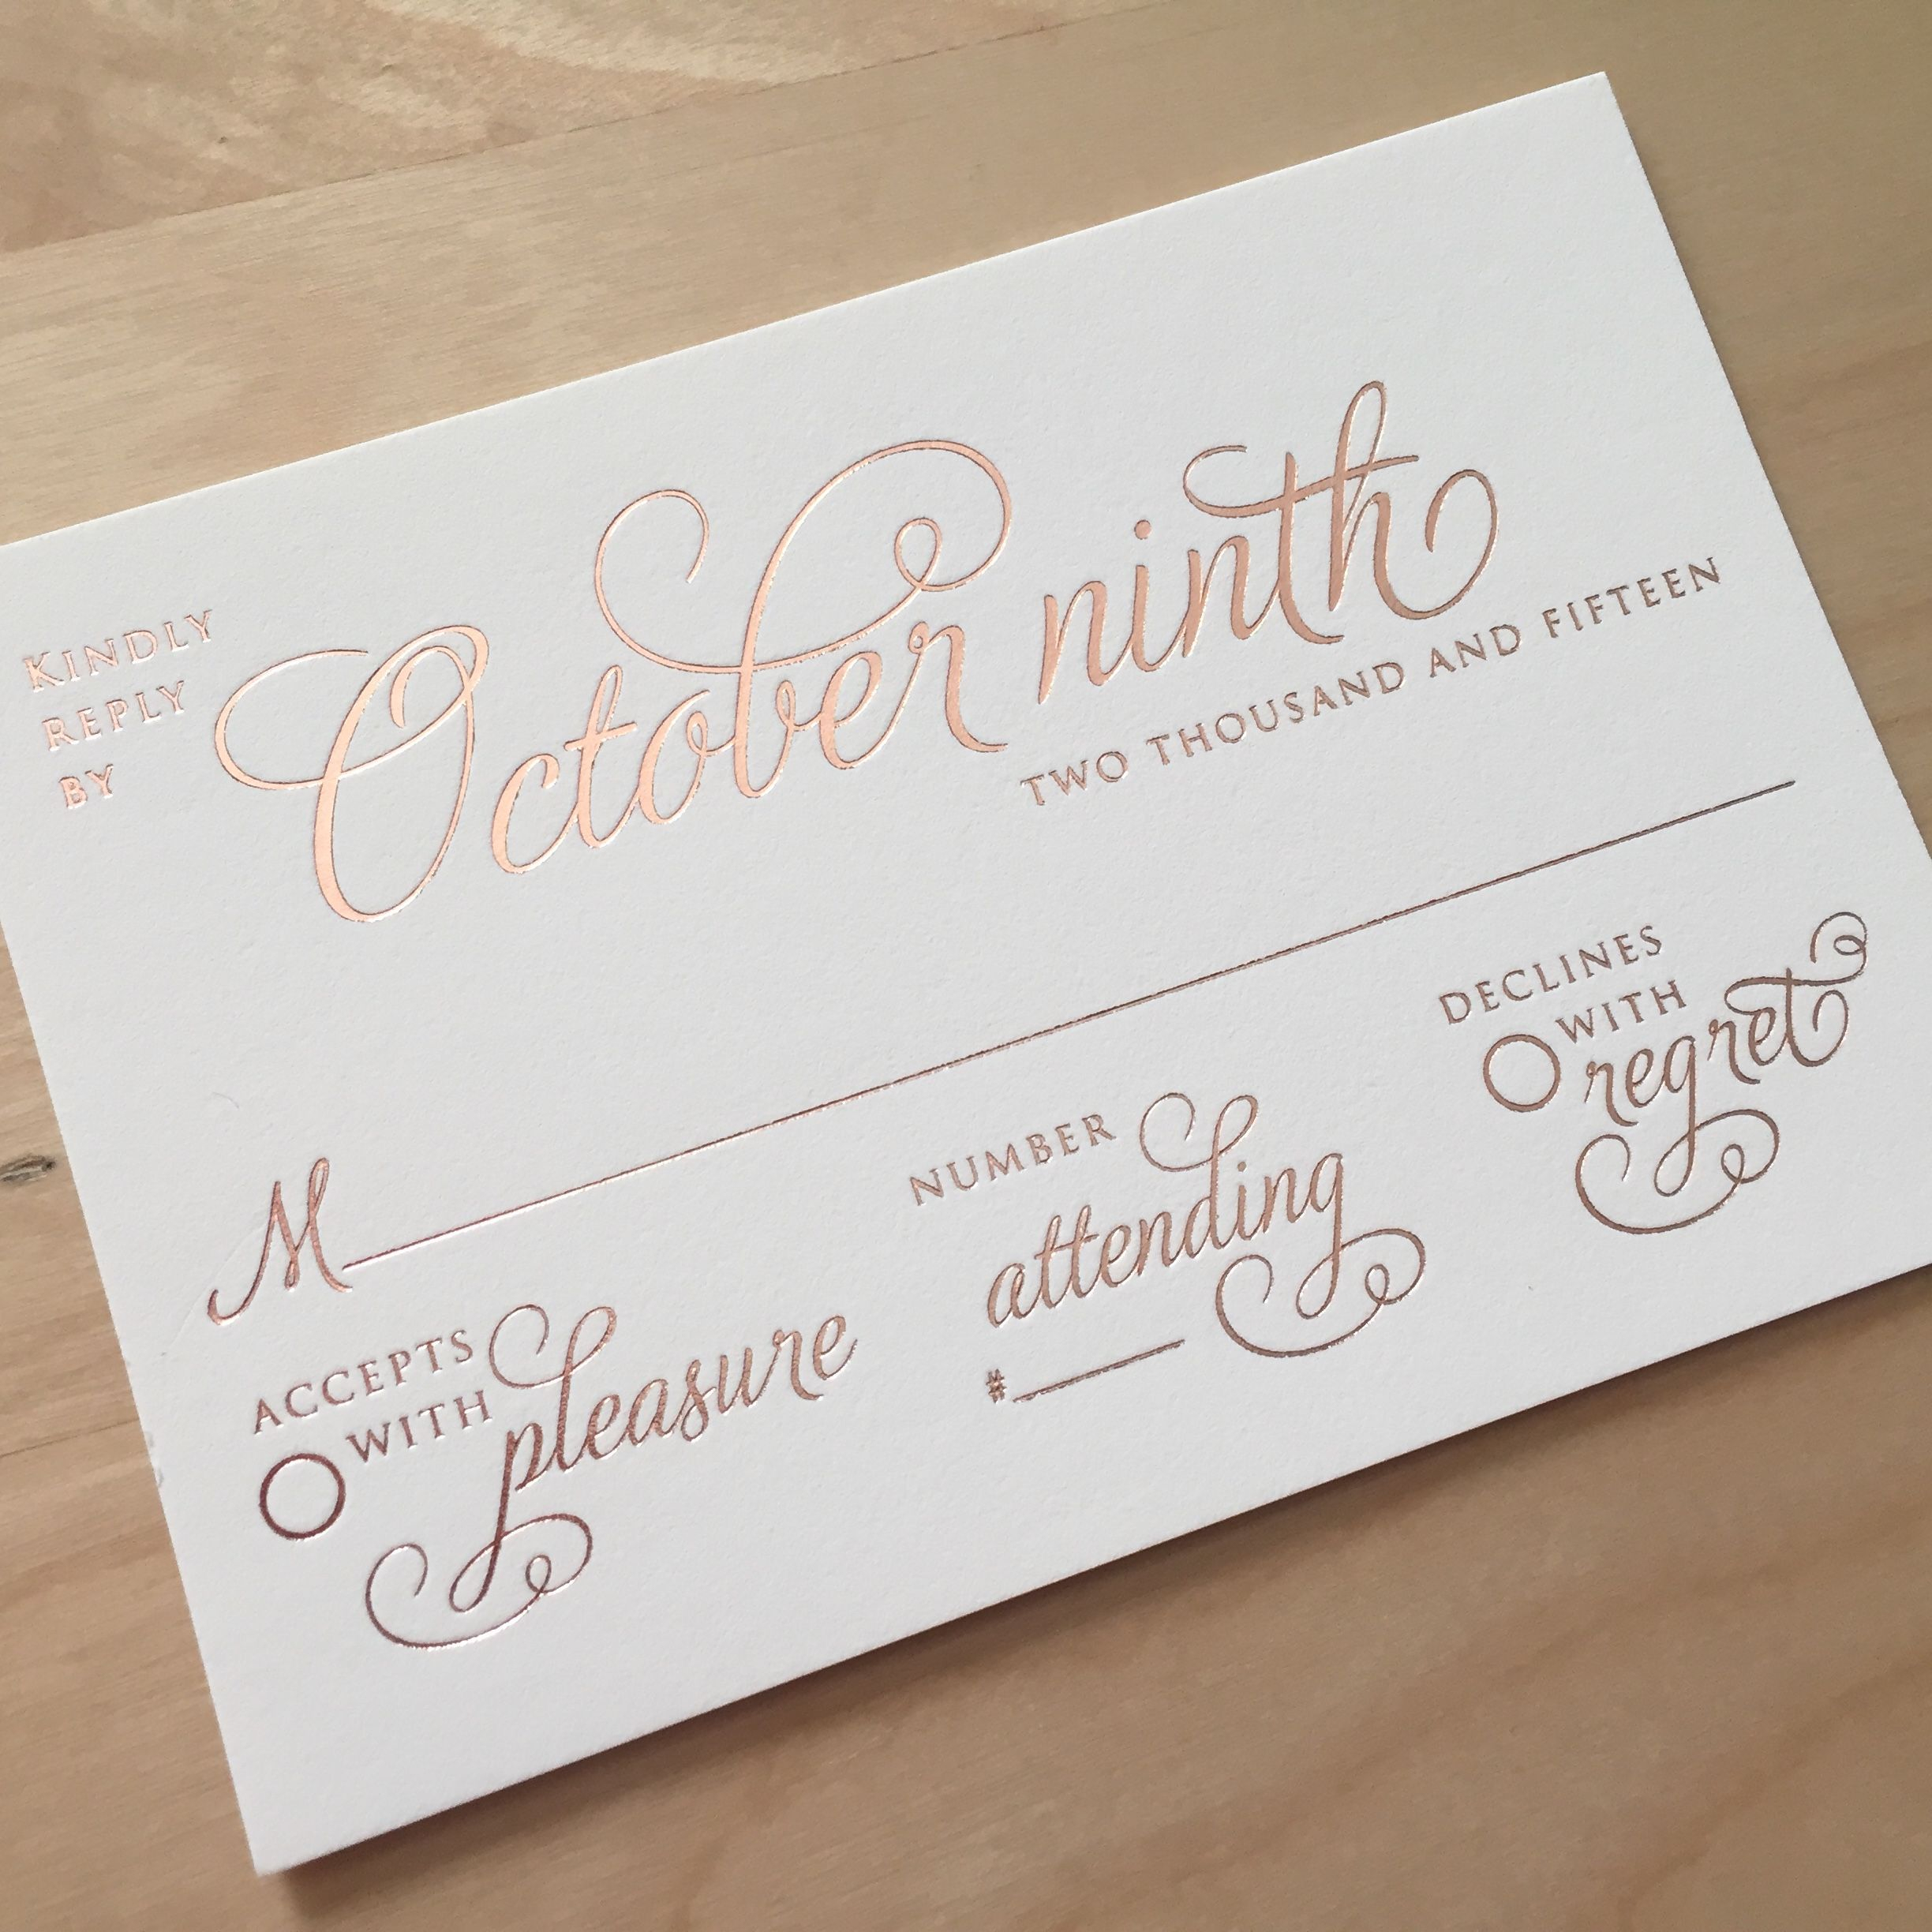 KINDLY
REPLY
BY
October ninth
TWO THOUSAND AND FIFTEEN
M
ACCEPTS
WITH pleasure
NUMBER
attending
#
DECLINES
WITH
regret